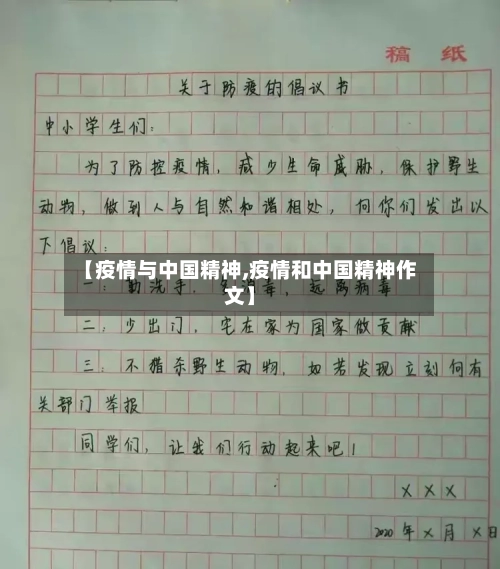 稿 纸
关于防疫的倡议书
中小学生们:
为了防控疫情,减少生命威胁,保护野生
动物,做到人与自然和谐相处,向你们发出以
下倡议:
【疫情与中国精神,疫情和中国精神作
文】
一:勤洗手,多消毒,远离病毒
二:少出门,宅在家为国家做贡献
三:不猎杀野生动物,如若发现立刻向有
关部门举报
同学们,让我们行动起来吧!
XXX
2020年X月X日